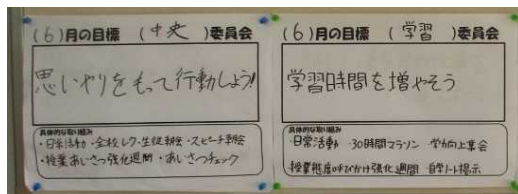 (6)月の目標 (中央)委員会
思いやりをもって行動しよう!
具体的な取り組み
・日常活動・全校レク・生徒朝会・スピーチ朝会
・授業あいさつ強化週間・あいさつチェック
(6)月の目標 (学習)委員会
学習時間を増やそう
具体的な取り組み
・日常活動 30時間マラソン 学力向上集会
授業態度呼びかけ強化週間・自学ノート掲示